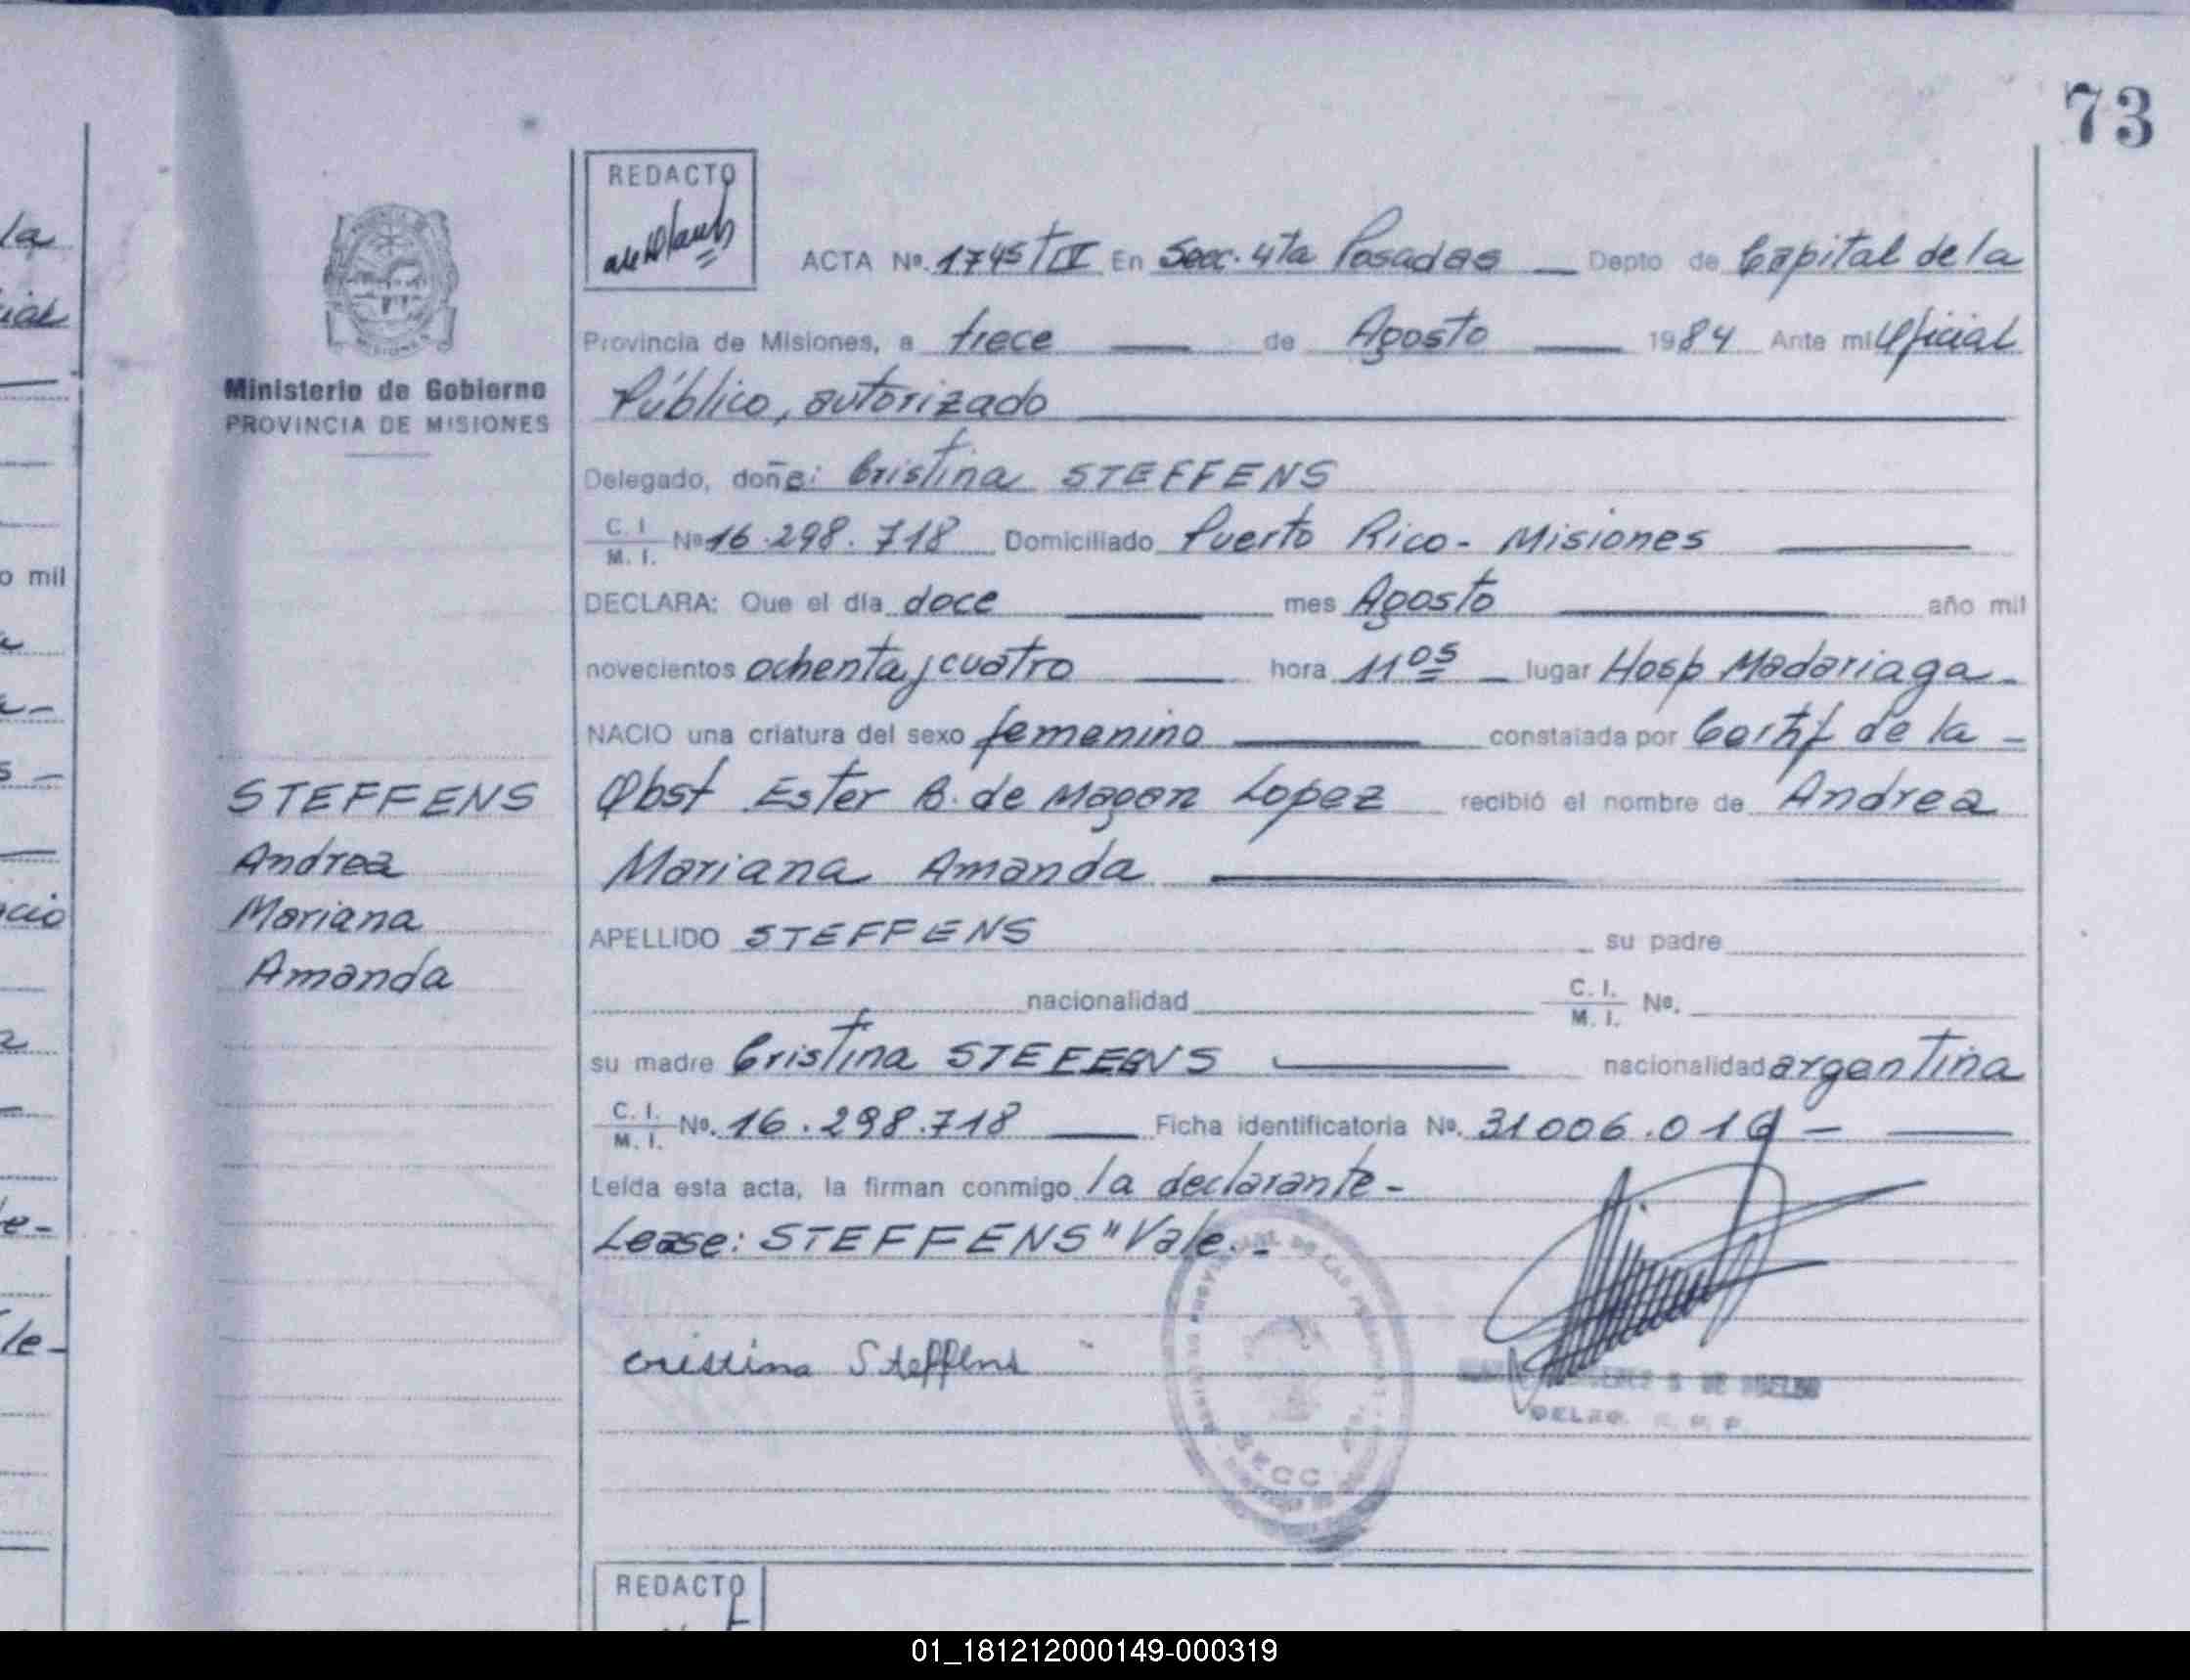 73
REDACTO
ACTA Nº. 1745 T IV En Secc. 4ta Posadas — Depto de Capital de la
Provincia de Misiones, a trece — de Agosto — 1984 Ante mi Oficial
Público, autorizado
Ministerio de Gobierno
PROVINCIA DE MISIONES
Delegado, doña: Cristina STEFFENS
C. I. / M. I. Nº 16.298.718 Domiciliado Puerto Rico - Misiones —
DECLARA: Que el día doce — mes Agosto — año mil
novecientos ochenta y cuatro — hora 11 05 — lugar Hosp Madariaga -
NACIO una criatura del sexo femenino — constatada por Certif de la -
STEFFENS
Andrea
Mariana
Amanda
Obst Ester B. de Magan Lopez recibió el nombre de Andrea
Mariana Amanda —
APELLIDO STEFFENS su padre
nacionalidad C. I. / M. I. Nº.
su madre Cristina STEFFENS — nacionalidad argentina
C. I. / M. I. Nº. 16.298.718 — Ficha identificatoria Nº. 31006.019 - —
Leída esta acta, la firman conmigo la declarante -
Lease: STEFFENS" Vale. -
cristina Steffens
SECC
REDACTO
la
o mil
cio
le-
01_181212000149-000319